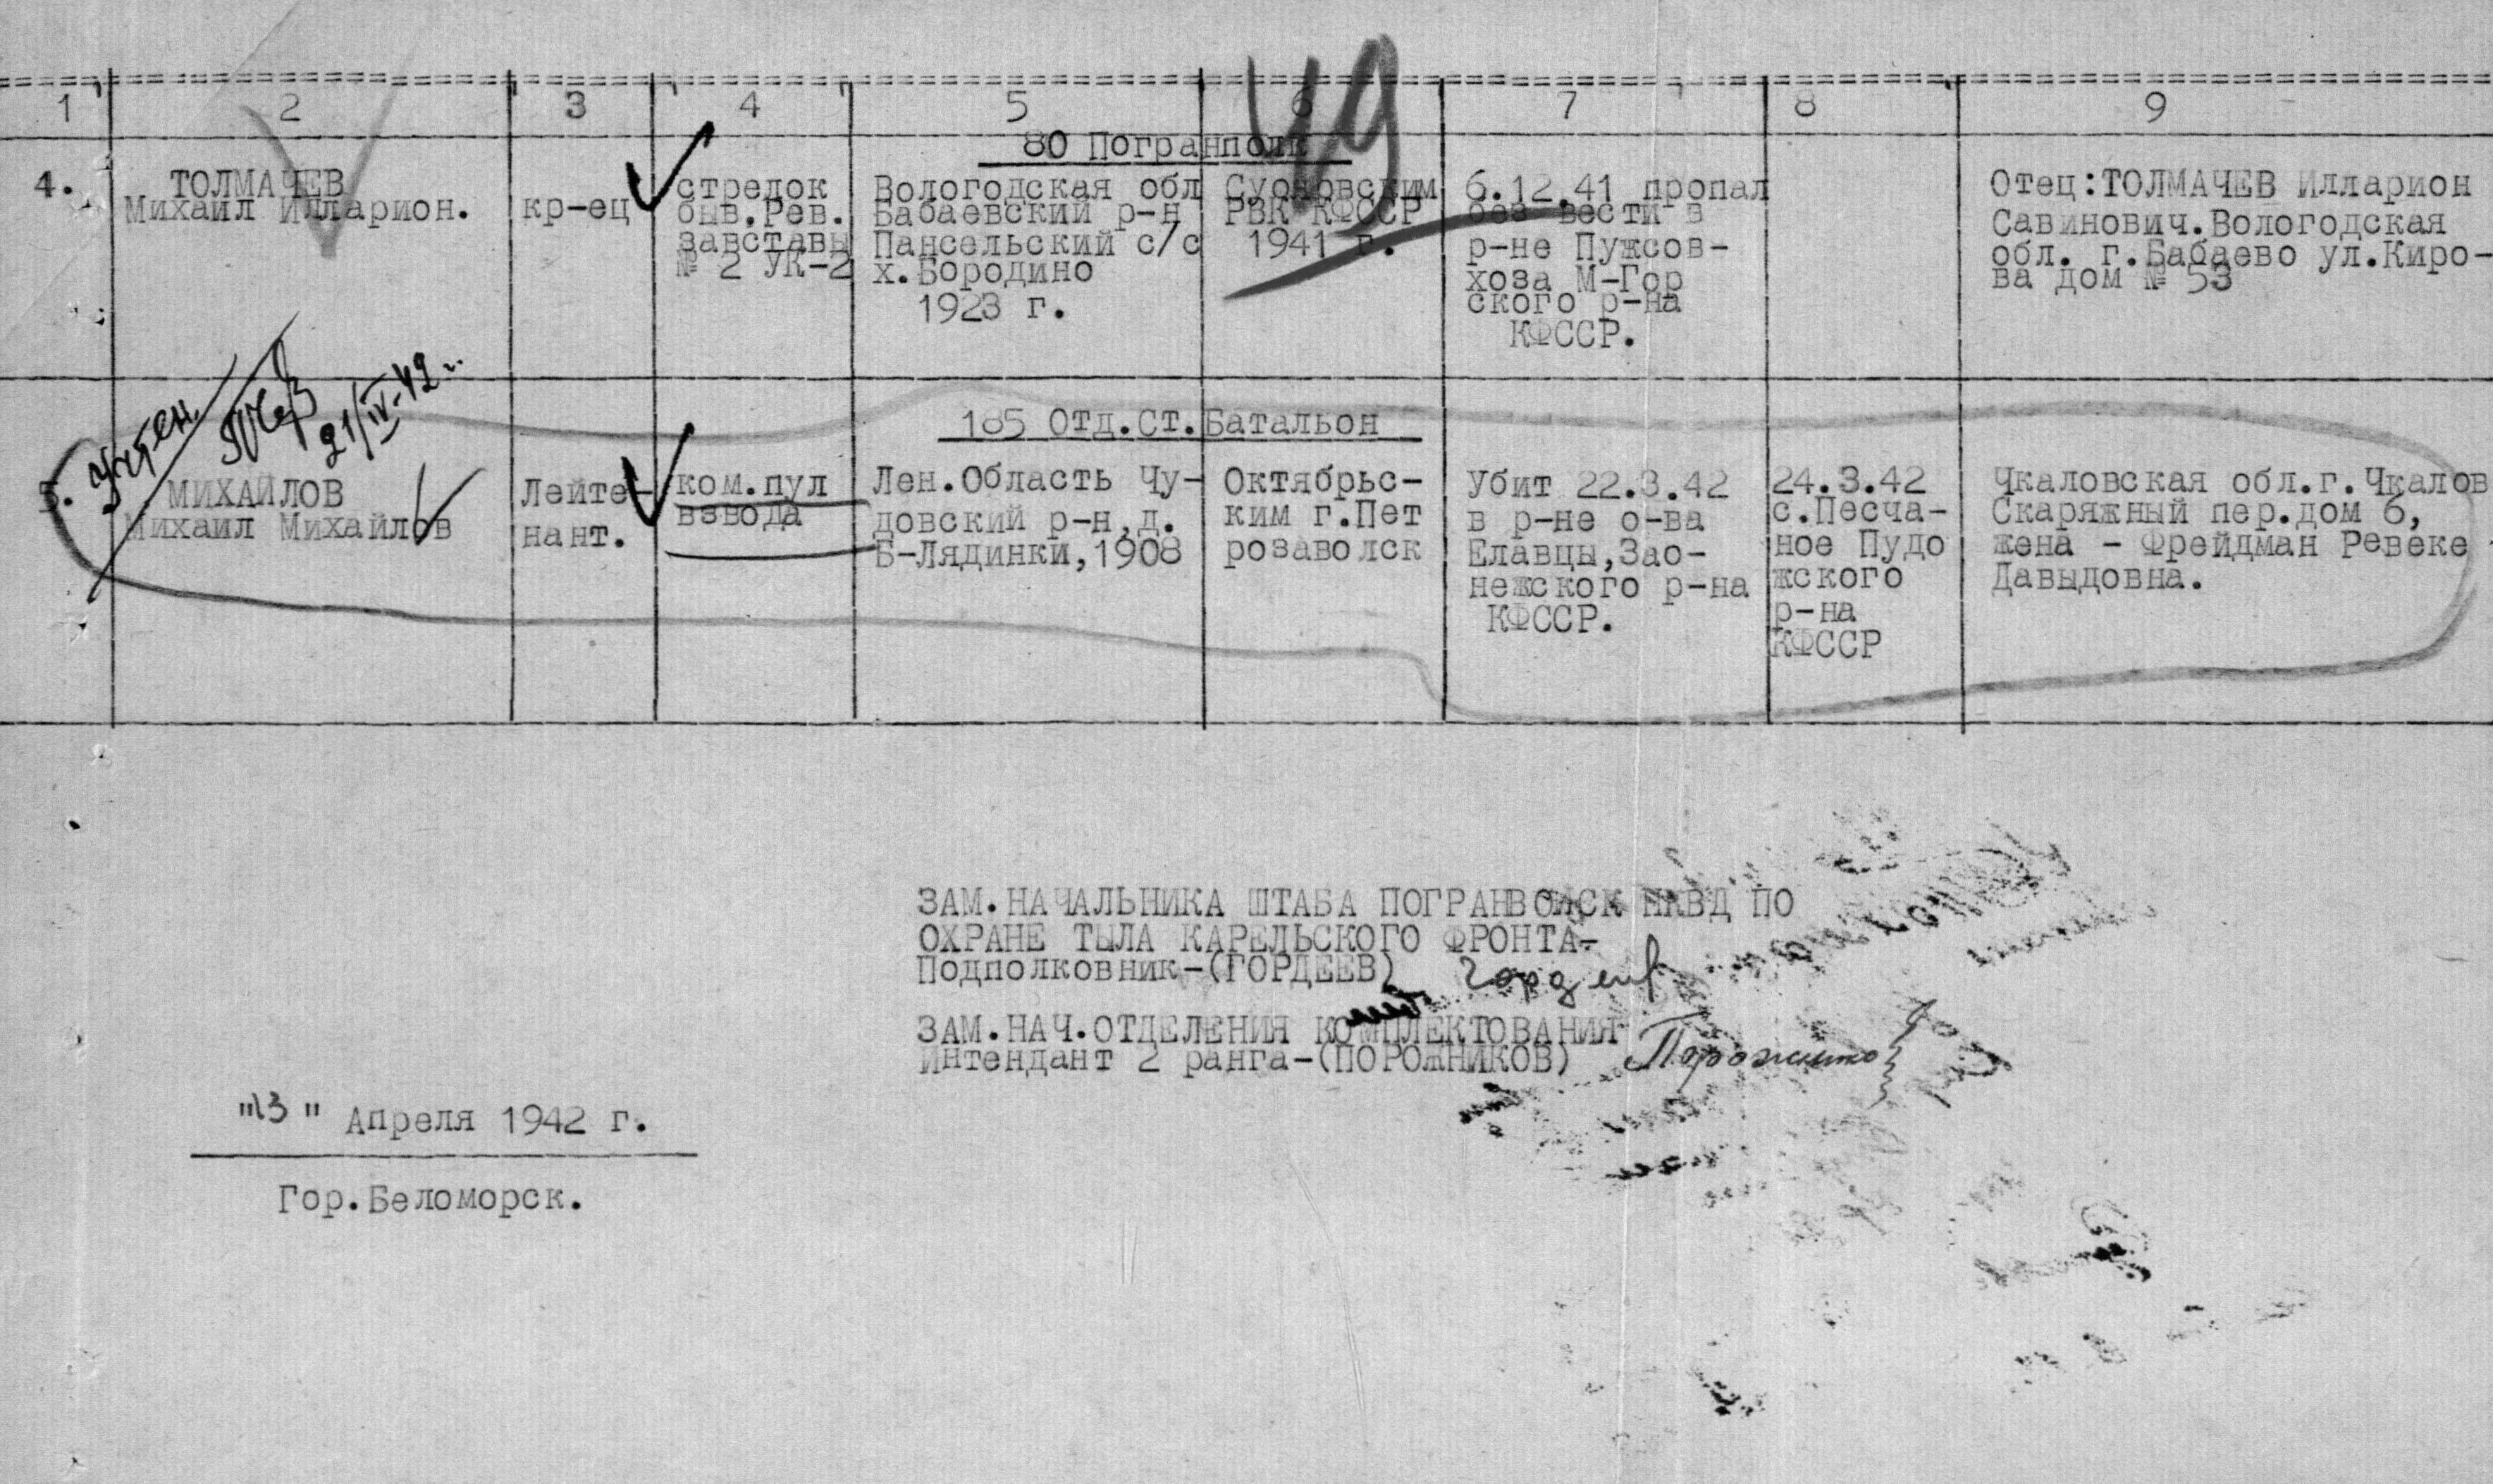 1 2 3 4 5 6 7 8 9
80 Погранполк
4.
ТОЛМАЧЕВ
Михаил Илларион.
кр-ец
стрелок
быв.Рев.
завставы
№ 2 УК-2
Вологодская обл
Бабаевский р-н
Пансельский с/с
х.Бородино
1923 г.
Суоновским
РВК КФССР
1941 г.
6.12.41 пропал
без вести в
р-не Пужсов-
хоза М-Гор
ского р-на
КФССР.
Отец:ТОЛМАЧЕВ Илларион
Савинович.Вологодская
обл. г.Бабаево ул.Киро-
ва дом № 53
учтен
21/IV-42г.
185 Отд.Ст.Батальон
5.
МИХАЙЛОВ
Михаил Михайлов
Лейте-
нант.
ком.пул
взвода
Лен.Область Чу-
довский р-н,д.
Б-Лядинки,1908
Октябрьс-
ким г.Пет
розаволск
Убит 22.3.42
в р-не о-ва
Елавцы,Зао-
нежского р-на
КФССР.
24.3.42
с.Песча-
ное Пудо
жского
р-на
КФССР
Чкаловская обл.г.Чкалов
Скаряжный пер.дом 6,
жена - Фрейдман Ревеке
Давыдовна.
ЗАМ.НАЧАЛЬНИКА ШТАБА ПОГРАНВОЙСК НКВД ПО
ОХРАНЕ ТЫЛА КАРЕЛЬСКОГО ФРОНТА-
Подполковник-(ГОРДЕЕВ) Гордеев
ЗАМ.НАЧ.ОТДЕЛЕНИЯ КОМПЛЕКТОВАНИЯ
Интендант 2 ранга-(ПОРОЖНИКОВ) Порожников
"13" Апреля 1942 г.
Гор.Беломорск.